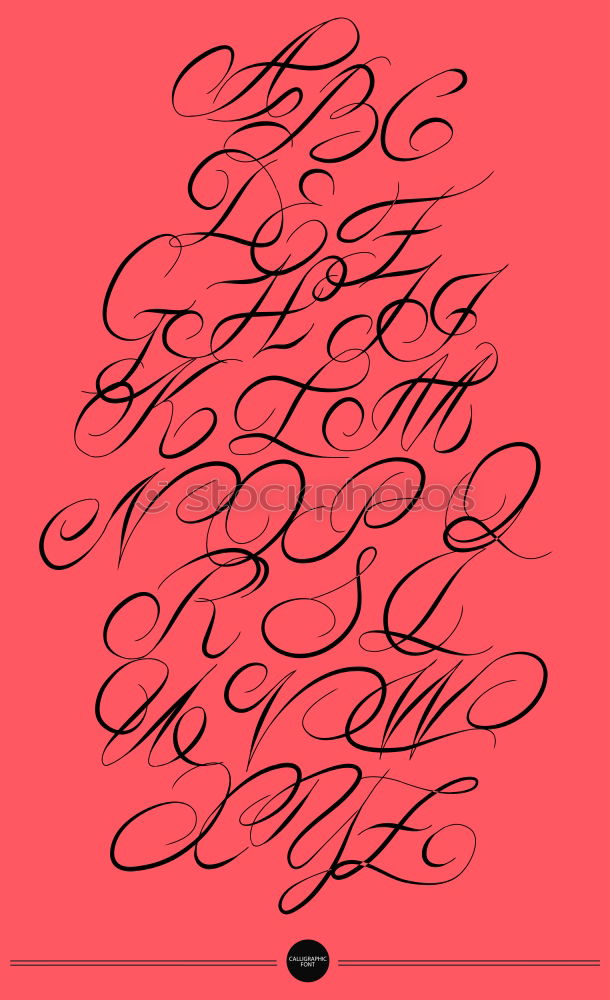 A B C
D E F
G H I J
K L M
N O P Q
R S T
U V W
X Y Z
© stockphotos
CALLIGRAPHIC
FONT